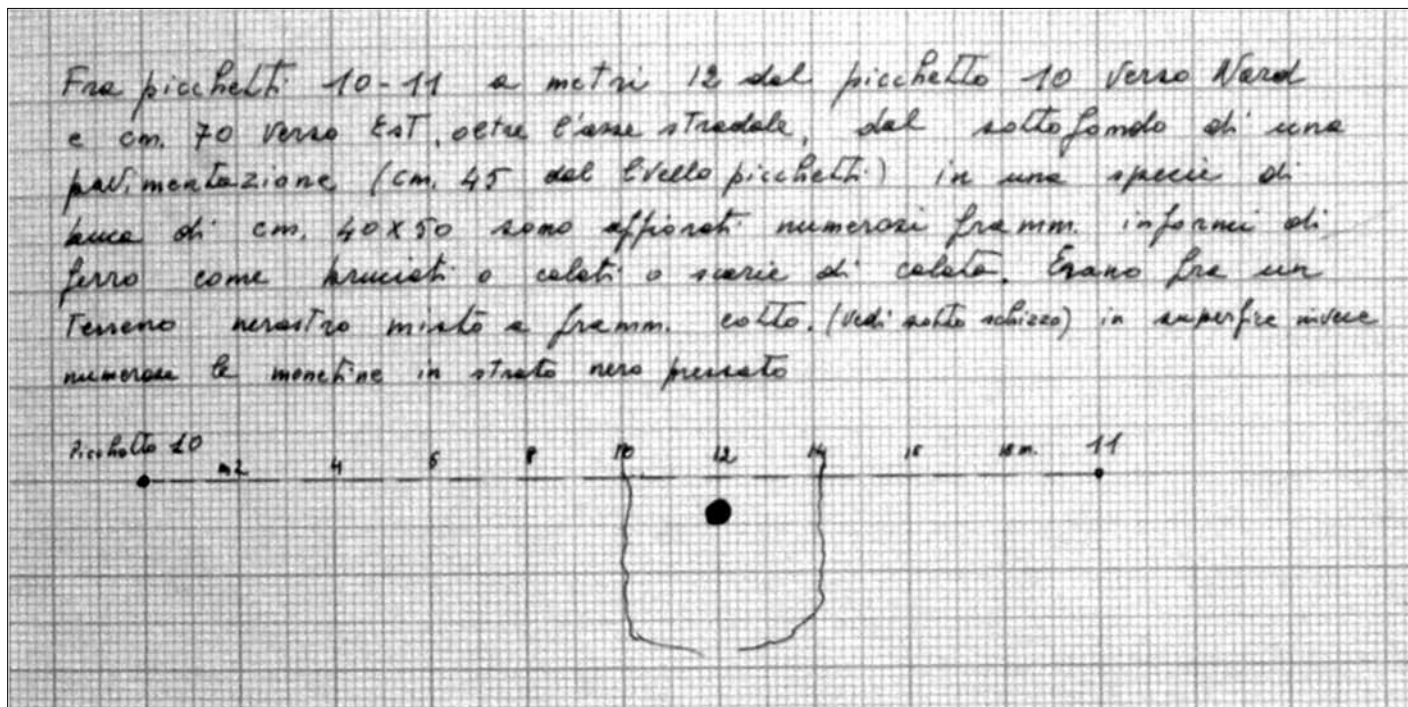 Fra picchetti 10-11 a metri 12 dal picchetto 10 verso Nord
e cm. 70 verso EsT, oltre l'asse stradale, dal sottofondo di una
pavimentazione (cm. 45 dal livello picchetti) in una specie di
buca di cm. 40x50 sono affiorati numerosi framm. informi di
ferro come bruciati o colati o scorie di colata. Erano fra un
Terreno nerastro misto a framm. cotto. (vedi sotto schizzo) in superfice invece
numerose le monetine in strato nero pressato
Picchetto 10 m2 4 6 8 10 12 14 16 18 m. 11